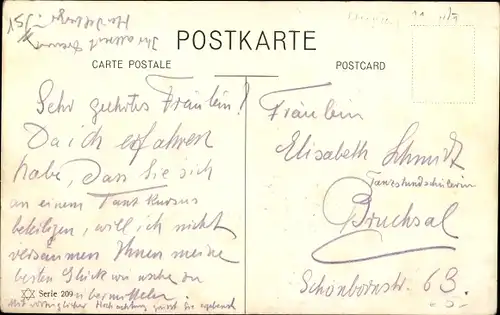 POSTKARTE
CARTE POSTALE
POSTCARD
Sehr geehrtes Fräulein!
Da ich erfahren
habe, dass Sie sich
an einem Tanzkursus
beteiligen, will ich nicht
versäumen Ihnen meine
besten Glückwünsche zu
übermitteln.
Mit vorzüglicher Hochachtung grüsst Sie ergebenst
Fräulein
Elisabeth Schmidt
Tanzstundschülerin
Bruchsal
Schönbornstr. 63.
Serie 209